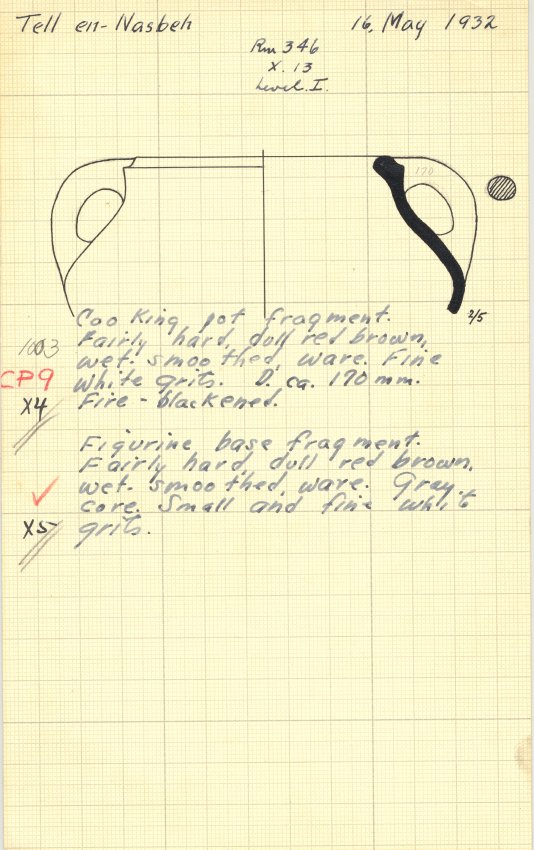 Tell en-Nasbeh 16, May 1932
Rm 346
X. 13
Level. I.
170
2/5
Cooking pot fragment.
1003 Fairly hard, dull red brown,
wet-smoothed, ware. Fine
CP9 white grits. D. ca. 170 mm.
X4 Fire-blackened.
Figurine base fragment.
Fairly hard, dull red brown,
wet-smoothed, ware. Gray
core. Small and fine white
X5 grits.